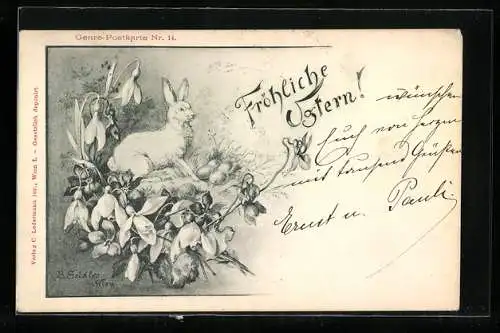 Genre-Postkarte Nr. 14.
Fröhliche
Ostern!
wünschen
Euch von Herzen
mit tausend Grüßen
Ernst u. Pauli.
Verlag C. Ledermann jun., Wien I. – Gesetzlich deponirt.
Wien